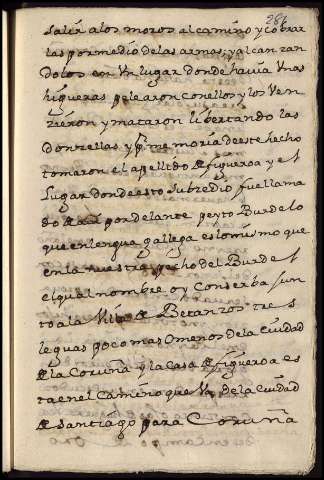 281
salir alos moros al camino y cobrar
las por medio de las armas, y alcanzan
dolos en Un lugar donde havia Unas
higueras pelearon con ellos y los Ven
zieron y mataron libertando las
donzellas y por memoria de este hecho
tomaron el apellido de figueroa y el
lugar donde esto subzedio fue llama
do de ai por delante peyto Burdelo
que en lengua gallega es lo mismo que
en la nuestra pecho del Burdel
el qual nombre oy Conserba Jun
to a la Villa de Betanzos tres
leguas poco mas o menos de la ciudad
de la Coruña y la Casa de figueroa es
ta en el Camino que Va de la Ciudad
de Santiago para Coruña